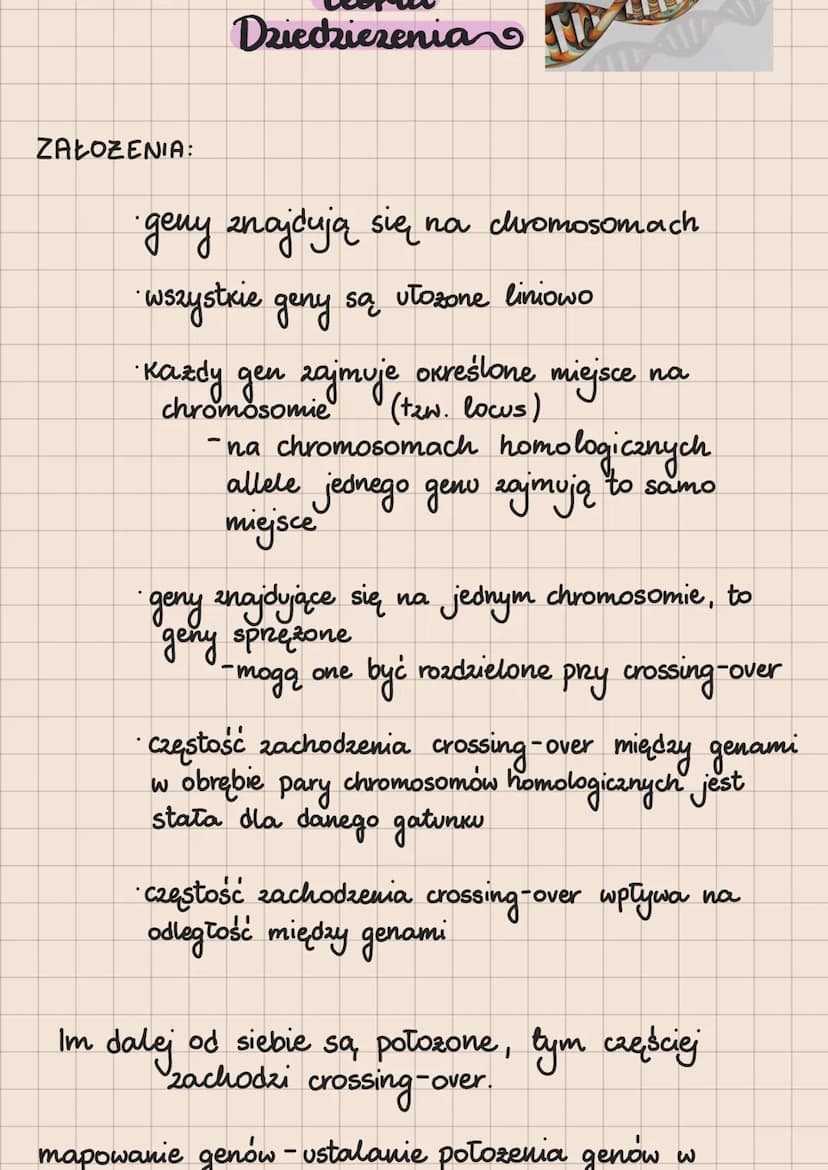 teoria
Dziedziczenia
ZAŁOŻENIA:
·geny znajdują się na chromosomach
·wszystkie geny są ułożone liniowo
·Każdy gen zajmuje określone miejsce na
chromosomie (tzw. locus)
-na chromosomach homologicznych
allele jednego genu zajmują to samo
miejsce
·geny znajdujące się na jednym chromosomie, to
geny sprzężone
-mogą one być rozdzielone przy crossing-over
·częstość zachodzenia crossing-over między genami
w obrębie pary chromosomów homologicznych jest
stała dla danego gatunku
·częstość zachodzenia crossing-over wpływa na
odległość między genami
Im dalej od siebie są położone, tym częściej
zachodzi crossing-over.
mapowanie genów - ustalanie położenia genów w